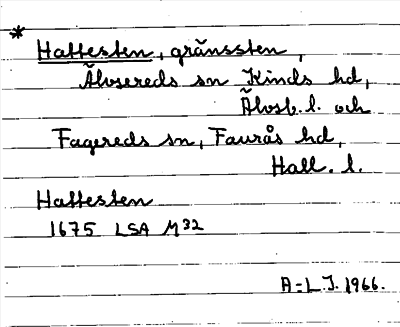 * Hattesten, gränssten,
Älvsereds sn Kinds hd,
Älvsb. l. och
Fagereds sn, Faurås hd,
Hall. l.
Hattesten
1675 LSA M32
A=L.J. 1966.